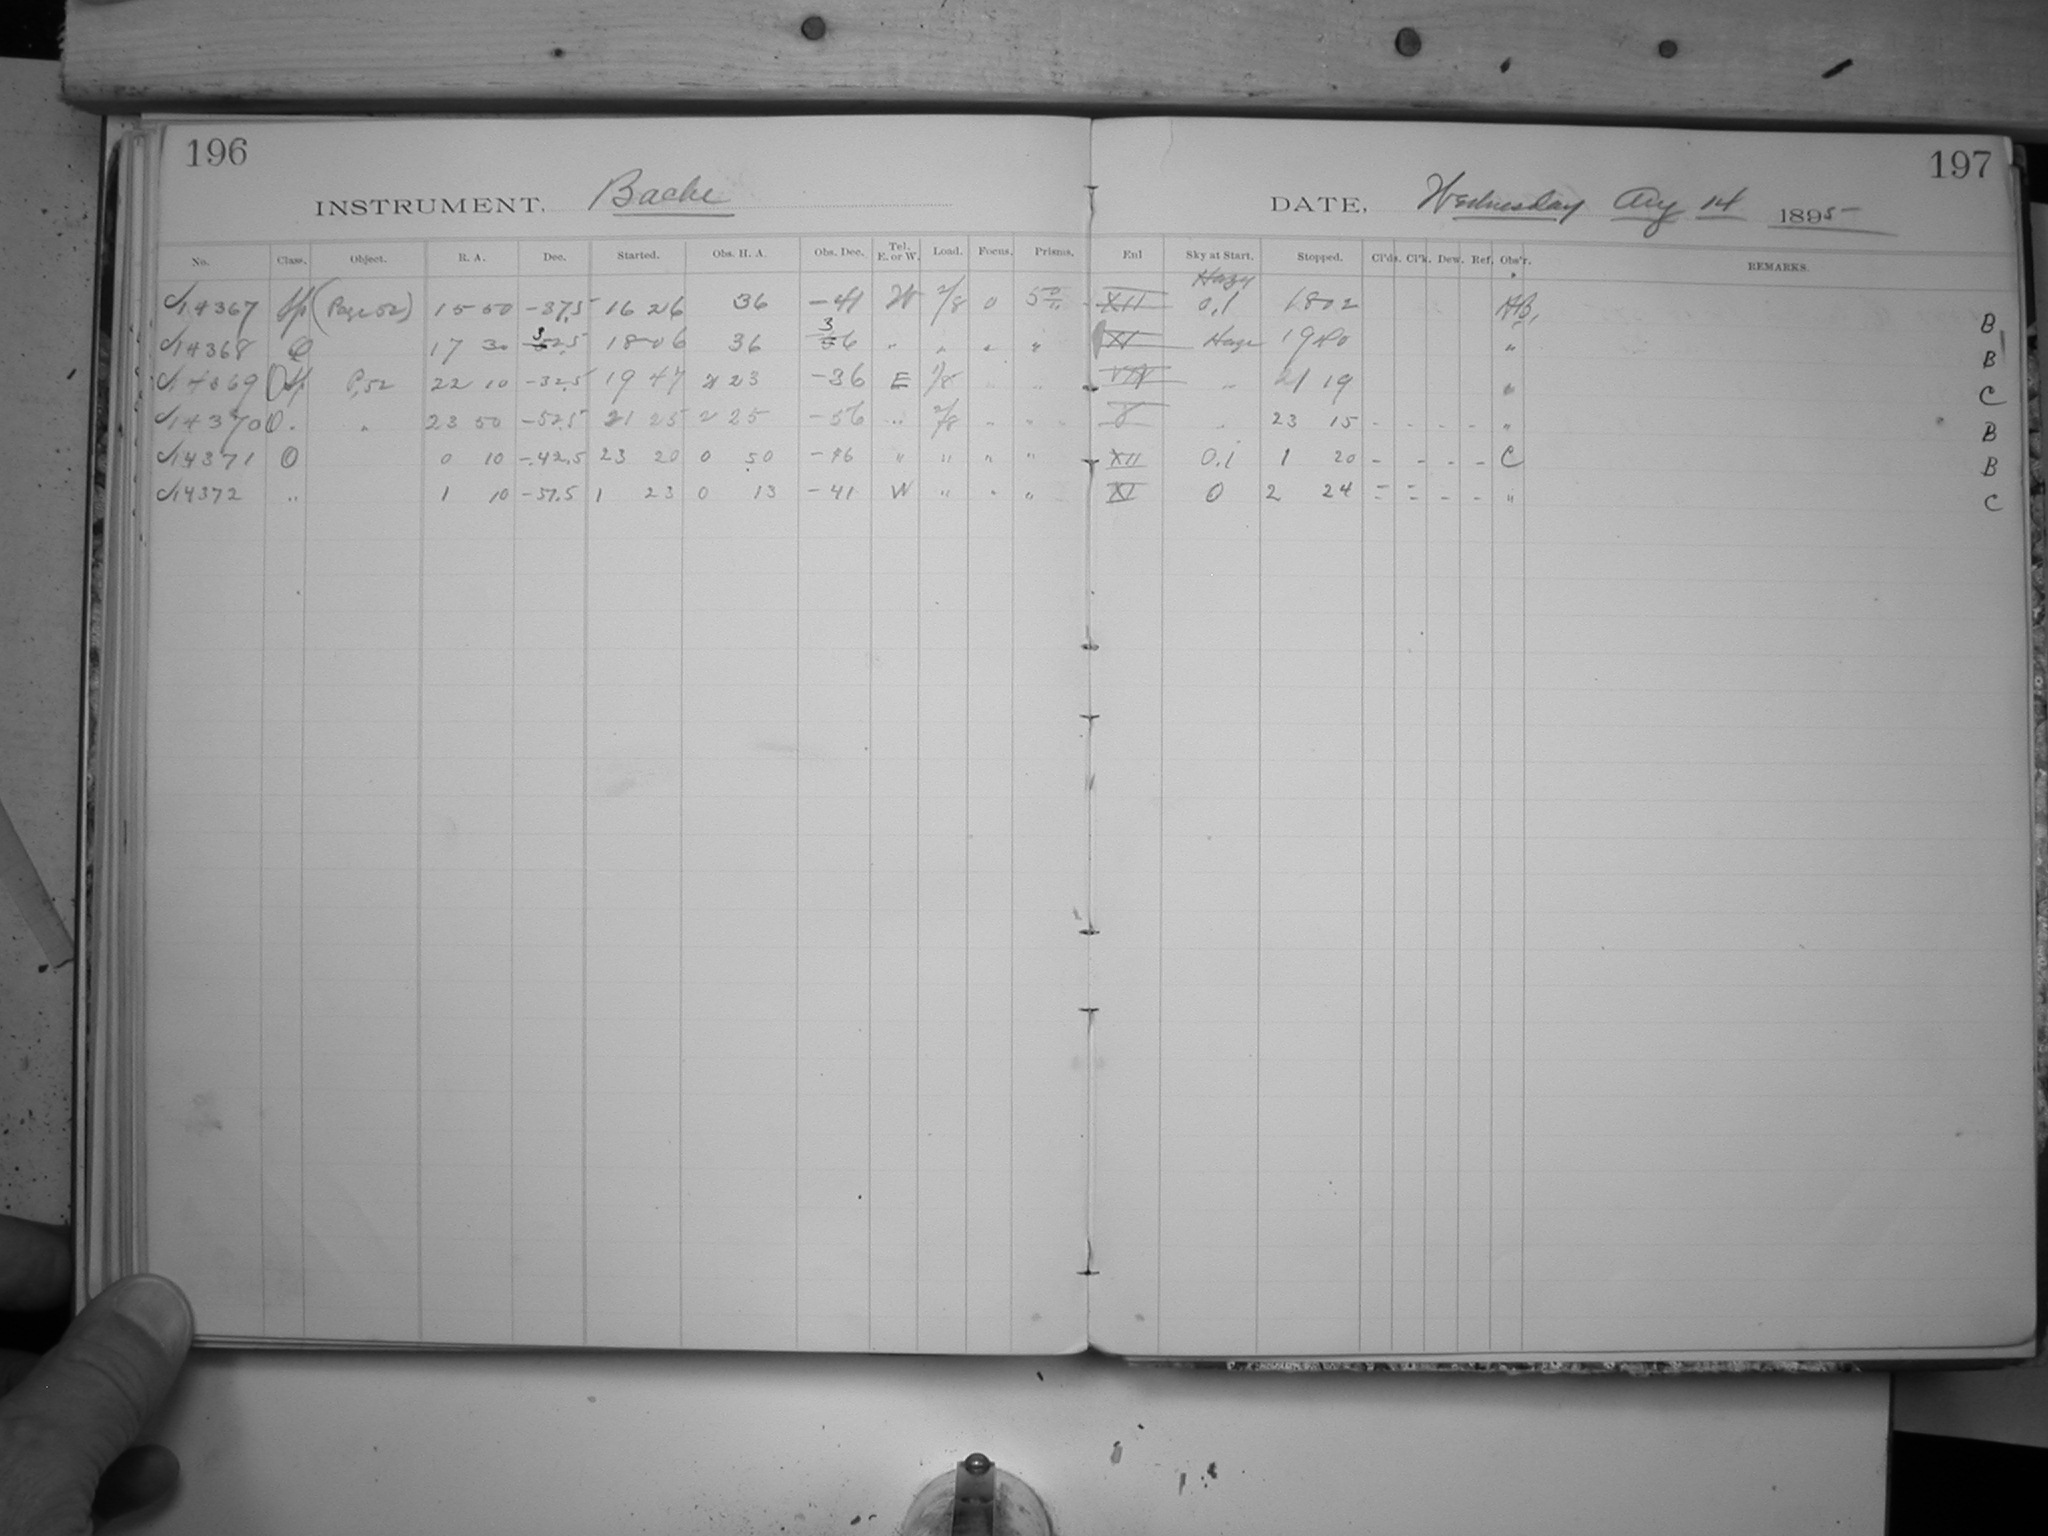 196
197
INSTRUMENT, Bache
DATE, Wednesday Aug 14 1895
No. Class. Object. R. A. Dec. Started. Obs. H. A. Obs. Dec. Tel. E. or W. Load. Focus. Prisms. Enl Sky at Start. Stopped. Cl'ds. Cl'k. Dew. Ref. Obs'r. REMARKS.
14367 Sp (Page 52) 15 50 -37.5 16 26 36 -41 W 2/8 0 XII Hazy 0.1 18 02 AB. B
14368 17 30 3 2.5 18 06 36 3 6 " " " " XI Haze 19 40 " B
14369 P. 52 22 10 -32.5 19 47 2 23 -36 E 1/8 " " " 21 19 " C
14370 " " 23 50 -52.5 21 25 2 25 -56 " 2/8 " " " 23 15 - - - - " B
14371 O 0 10 -42.5 23 20 0 50 -46 " " " " XII 0.1 1 20 - - - - C B
14372 " 1 10 -37.5 1 23 0 13 -41 W " " " XI 0 2 24 = = - - " C